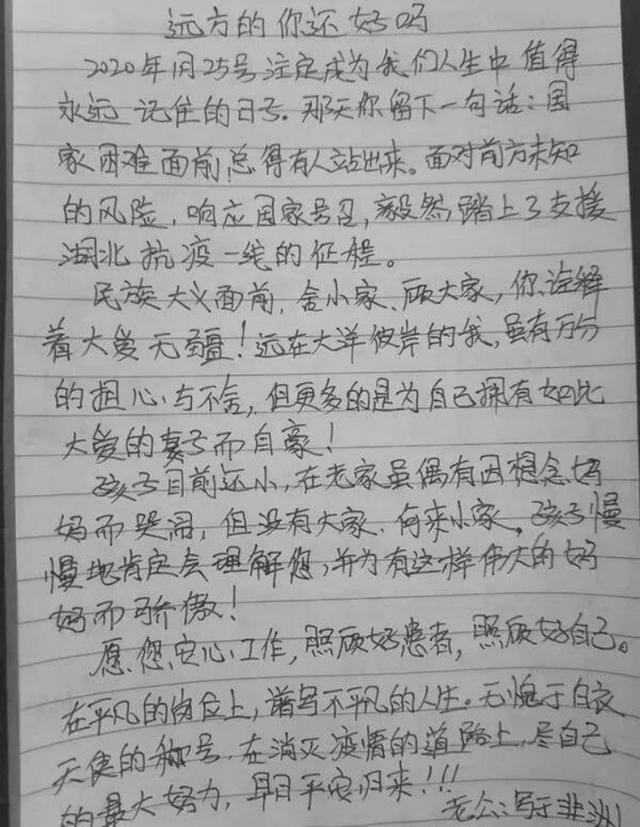 远方的你还好吗
2020年1月25号注定成为我们人生中值得
永远记住的日子。那天你留下一句话：国
家困难面前,总得有人站出来。面对前方未知
的风险，响应国家号召,毅然踏上了支援
湖北抗疫一线的征程。
民族大义面前,舍小家、顾大家，你诠释
着大爱无疆！远在大洋彼岸的我,虽有万分
的担心与不舍，但更多的是为自己拥有如此
大爱的妻子而自豪！
孩子目前还小，在老家虽偶有因想念妈
妈而哭闹，但没有大家、何来小家，孩子慢
慢地肯定会理解您，并为有这样伟大的妈
妈而骄傲！
愿您安心工作，照顾好患者，照顾好自己。
在平凡的岗位上，谱写不平凡的人生。无愧于白衣
天使的称号,在消灭疫情的道路上,尽自己
的最大努力，早日平安归来！！！
老公：写于非洲